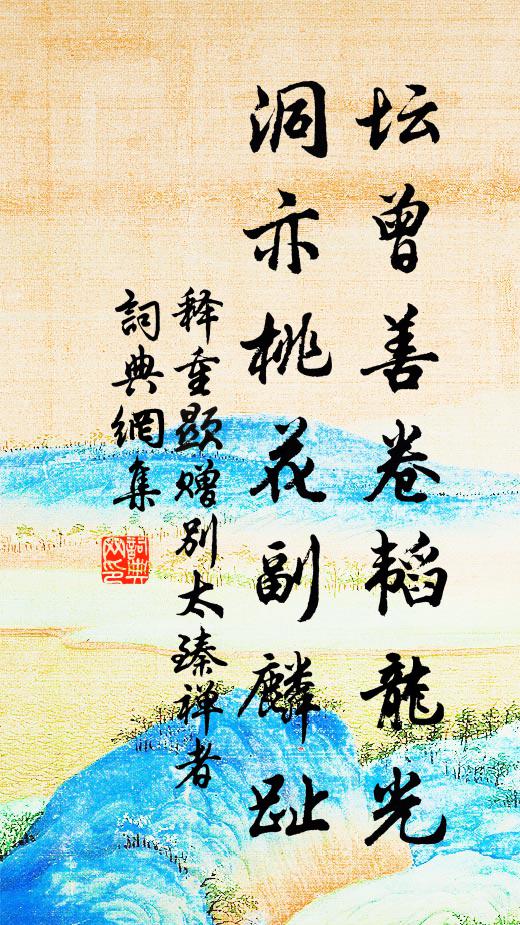 坛曾善卷韬龍光
洞亦桃花副麟趾
释重显赠别太臻禅者
詞典網集
詞典網印